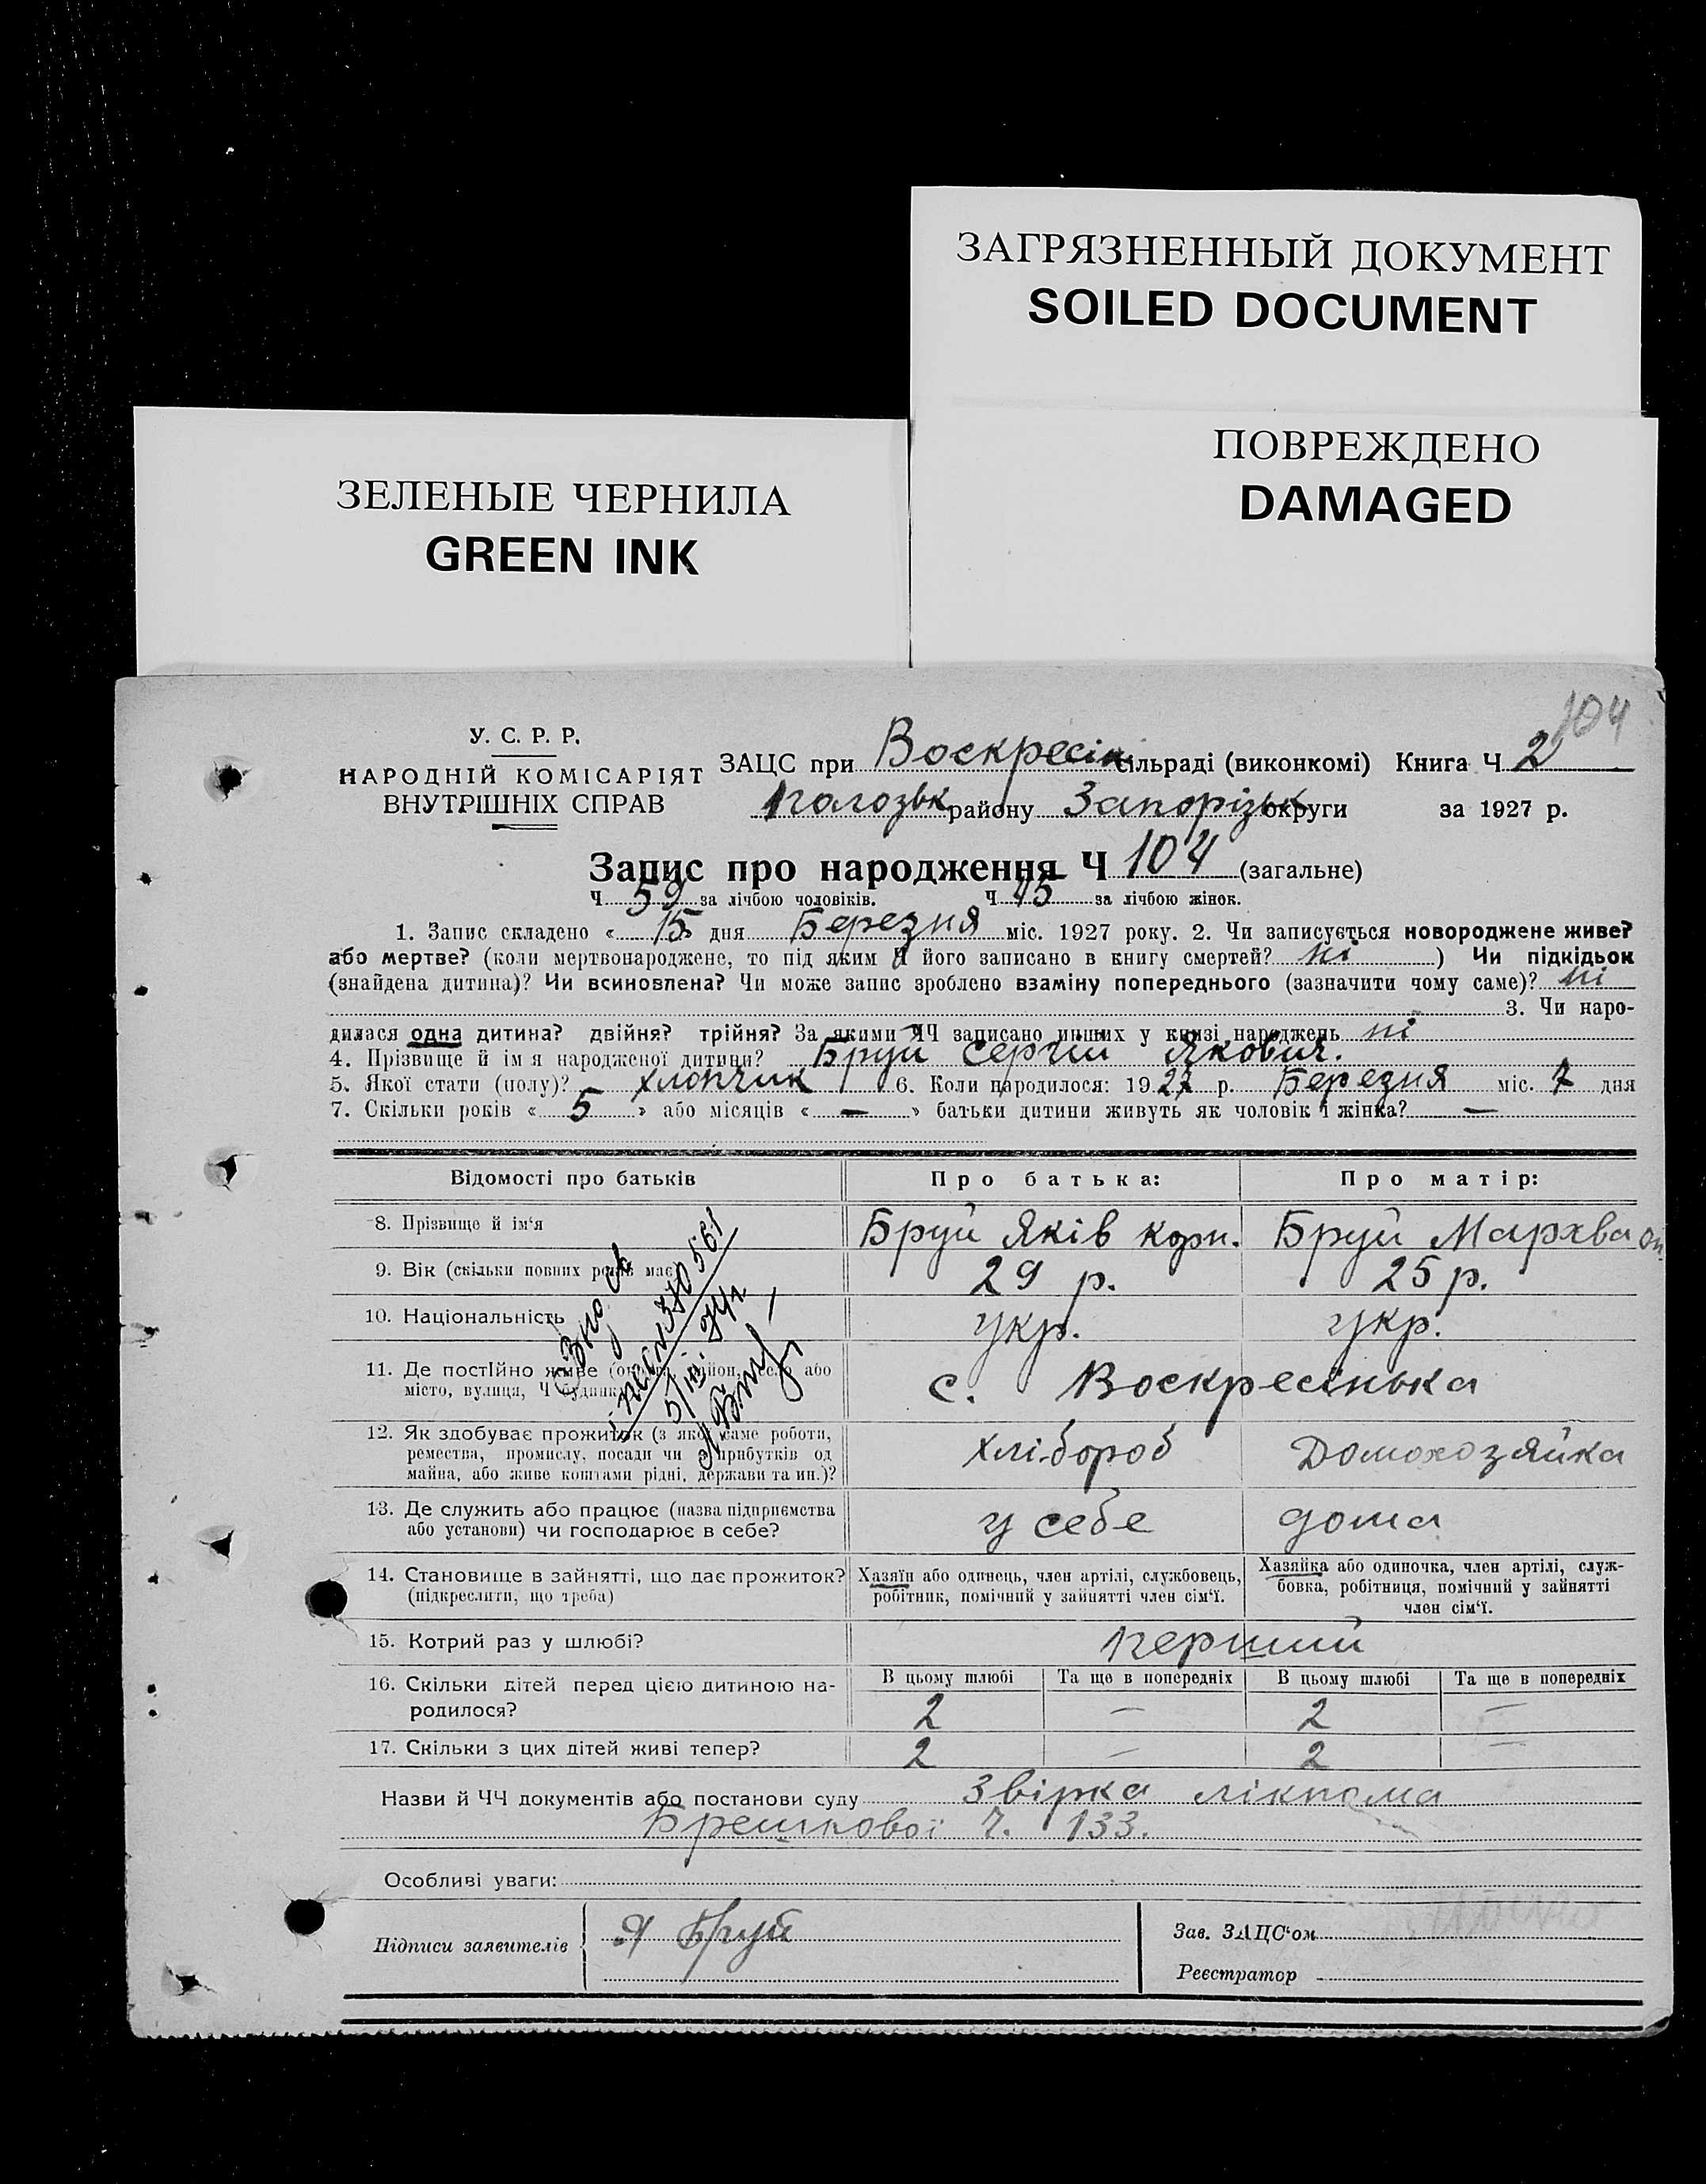 ЗАГРЯЗНЕННЫЙ ДОКУМЕНТ
SOILED DOCUMENT
ПОВРЕЖДЕНО
DAMAGED
ЗЕЛЕНЫЕ ЧЕРНИЛА
GREEN INK
104
У. С. Р. Р.
НАРОДНІЙ КОМІСАРІЯТ
ВНУТРІШНІХ СПРАВ
ЗАЦС при Воскресін. сільраді (виконкомі) Книга Ч 2
Пологзьк району Запорізьк округи за 1927 р.
Запис про народження Ч 104 (загальне)
Ч 59 за лічбою чоловіків. Ч 45 за лічбою жінок.
1. Запис складено « 15 » дня Березня міс. 1927 року. 2. Чи записується новороджене живе?
або мертве? (коли мертвонароджене, то під яким Ч його записано в книгу смертей? ні ) Чи підкідьок
(знайдена дитина)? Чи всиновлена? Чи може запис зроблено взаміну попереднього (зазначити чому саме)? ні
3. Чи наро-
дилася одна дитина? двійня? трійня? За якими ЧЧ записано инших у книзі народжень ні
4. Прізвище й ім я народженої дитини? Бруй Сергій Якович.
5. Якої стати (полу)? хлопчик 6. Коли народилося: 1927 р. Березня міс. 7 дня
7. Скільки років « 5 » або місяців « — » батьки дитини живуть як чоловік і жінка? —
Відомості про батьків Про батька: Про матір:
8. Прізвище й ім'я Бруй Яків корн. Бруй Мархва
9. Вік (скільки повних років має) 29 р. 25 р.
10. Національність укр. укр.
11. Де постійно живе район, або
місто, вулиця, Ч будинку с. Воскресінька
12. Як здобуває прожиток (з якої саме роботи,
ремества, промислу, посади чи з прибутків од
майна, або живе коштами рідні, держави та ин.)? хлібороб Домохозяйка
13. Де служить або працює (назва підприємства
або установи) чи господарює в себе? у себе дома
14. Становище в зайнятті, що дає прожиток?
(підкреслити, що треба)
Хазяїн або одинець, член артілі, службовець,
робітник, помічний у зайнятті член сім'ї.
Хазяйка або одиночка, член артілі, служ-
бовка, робітниця, помічний у зайнятті
член сім'ї.
15. Котрий раз у шлюбі? перший
В цьому шлюбі Та ще в попередніх В цьому шлюбі Та ще в попередніх
16. Скільки дітей перед цією дитиною на-
родилося? 2 — 2 —
17. Скільки з цих дітей живі тепер? 2 — 2 —
Назви й ЧЧ документів або постанови суду Звірка лікпома
Брешкової Ч. 133.
Особливі уваги:
Підписи заявителів Я Бруй
Зав. ЗАЦС'ом
Реєстратор